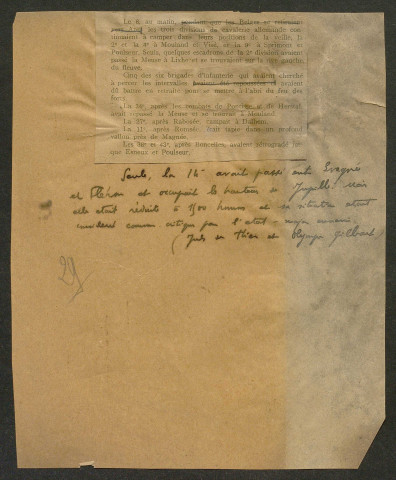 Le 6 au matin, pendant que les Belges se retiraient
les trois divisions de cavalerie allemande con-
tinuaient à camper dans leurs positions de la veille, la
2e et la 4e à Mouland et Visé, et la 9e à
Poulseur. Seuls, quelques escadrons de la 2e division avaient
passé la Meuse à Lixhe et se trouvaient sur la rive gauche
du fleuve.
Cinq des six brigades d'infanterie qui avaient cherché
à percer les intervalles avaient été
dû battre en retraite pour se mettre à l'abri du feu des
forts.
La 34e, après les combats de et de Herstal,
avait repassé la Meuse et se trouvait à Mouland.
La 27e, après Rabosée, campait à Dalhem.
La 11e, après Romsée, était tapie dans un profond
vallon près de Magnée.
Les 38e et 43e, après Boncelles, avaient rétrogradé jus-
que Esneux et Poulseur.
Seule, la 14e avait passé entre Evegnée
et Fléron et occupait les hauteurs de Jupille mais
elle était réduite à 1500 hommes et sa situation était
considérée comme critique par l'état-major
(Jules de Thier et Olympe Gilbart)
29